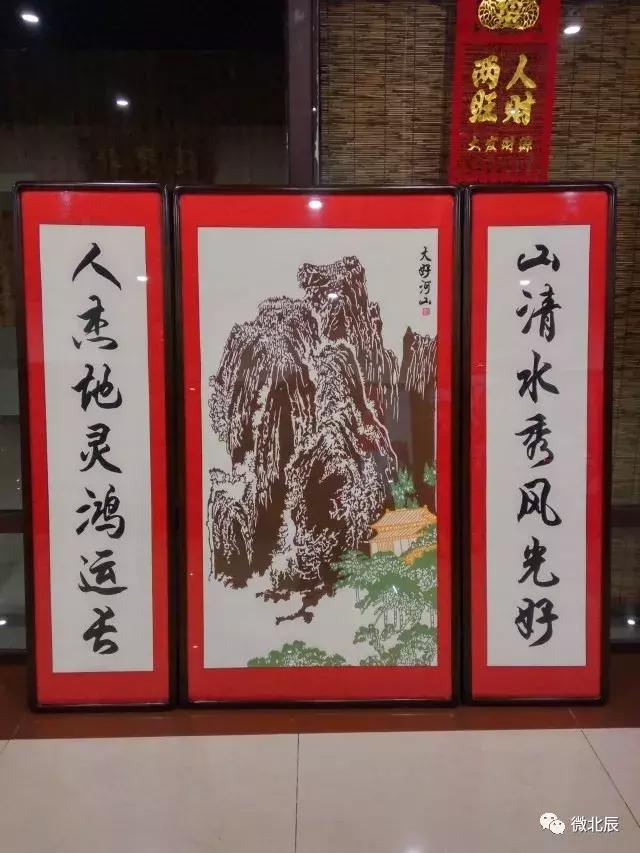 人财
两旺
大发财源
山清水秀风光好
大好河山
人杰地灵鸿运长
微北辰